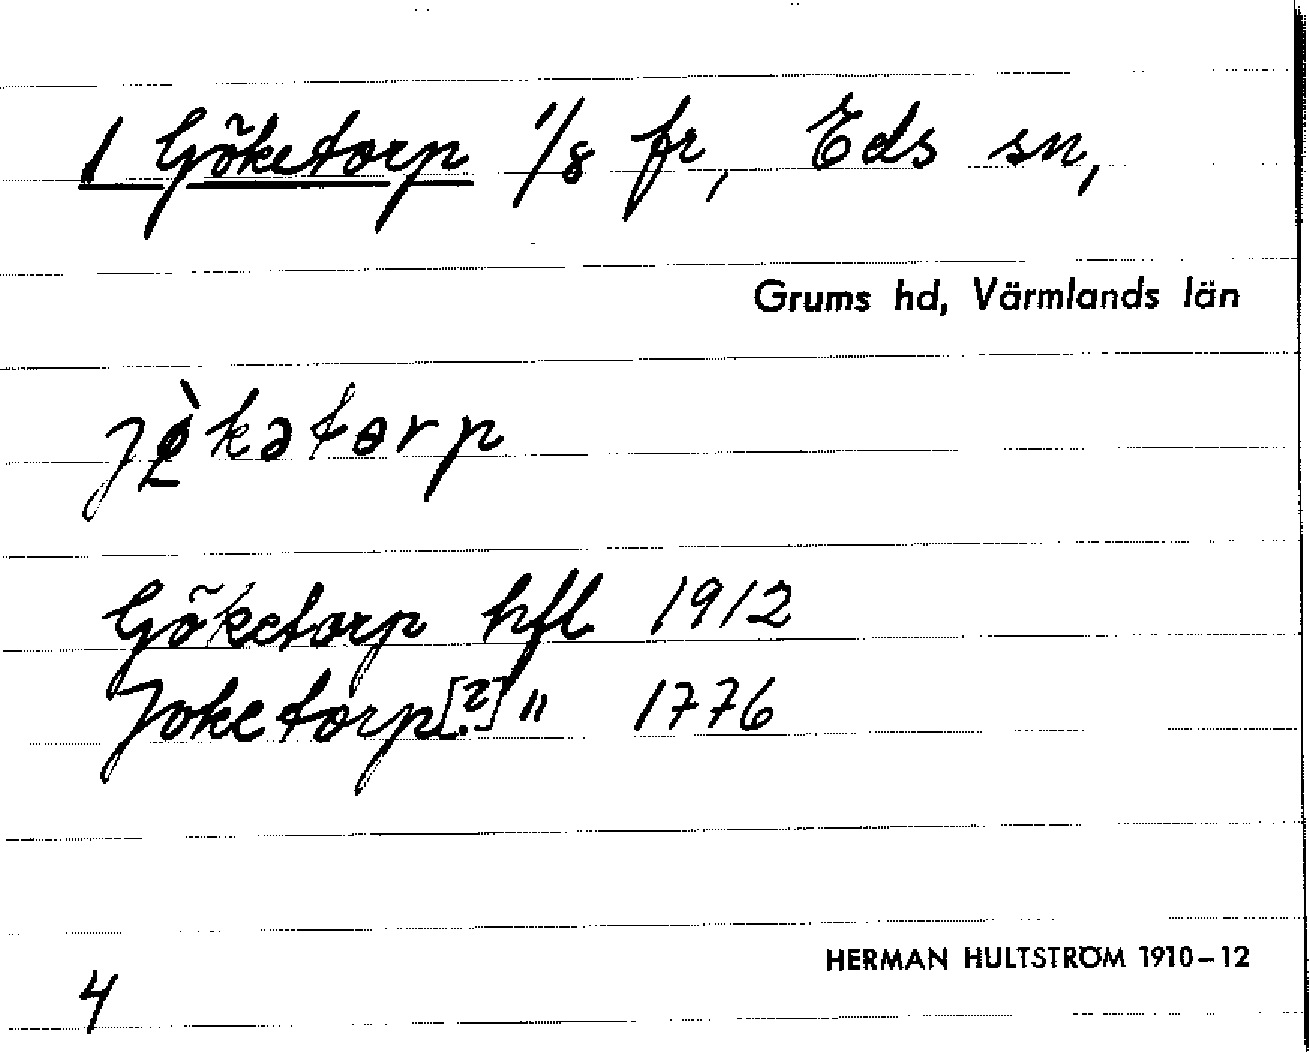 1 Göketorp 1/8 fr, Eds sn,
Grums hd, Värmlands län
jø̀kətɵrp
Göketorp hfl 1912
Joketorp[?] " 1776
HERMAN HULTSTRÖM 1910–12
4